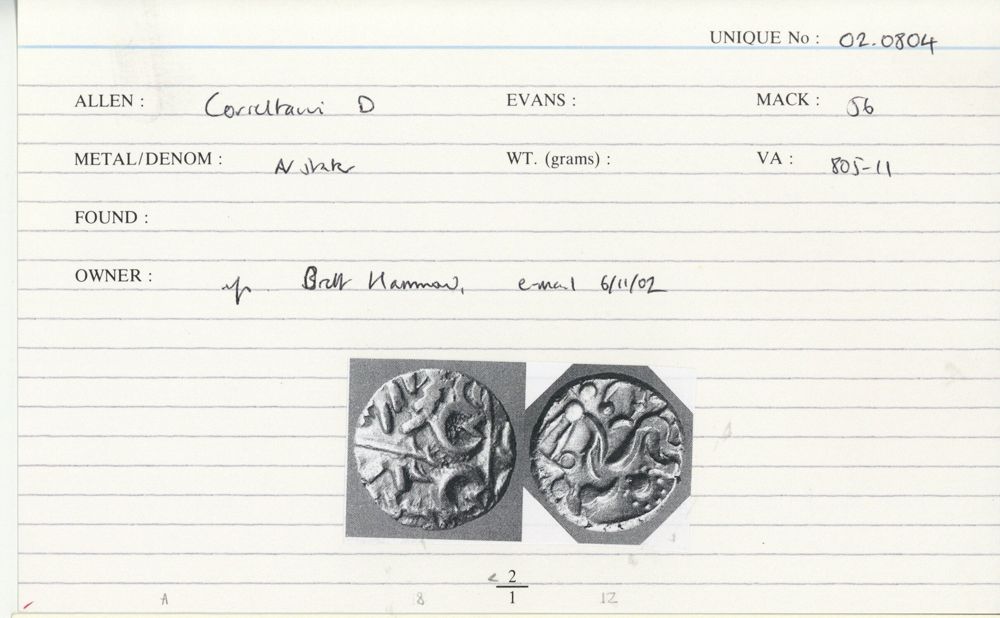 UNIQUE No : 02.0804
ALLEN : Corieltauvi D EVANS : MACK : 56
METAL/DENOM : AV stater WT. (grams) : VA : 805-11
FOUND :
OWNER : Brett Hammond, e-mail 6/11/02
2
1
A 8 12